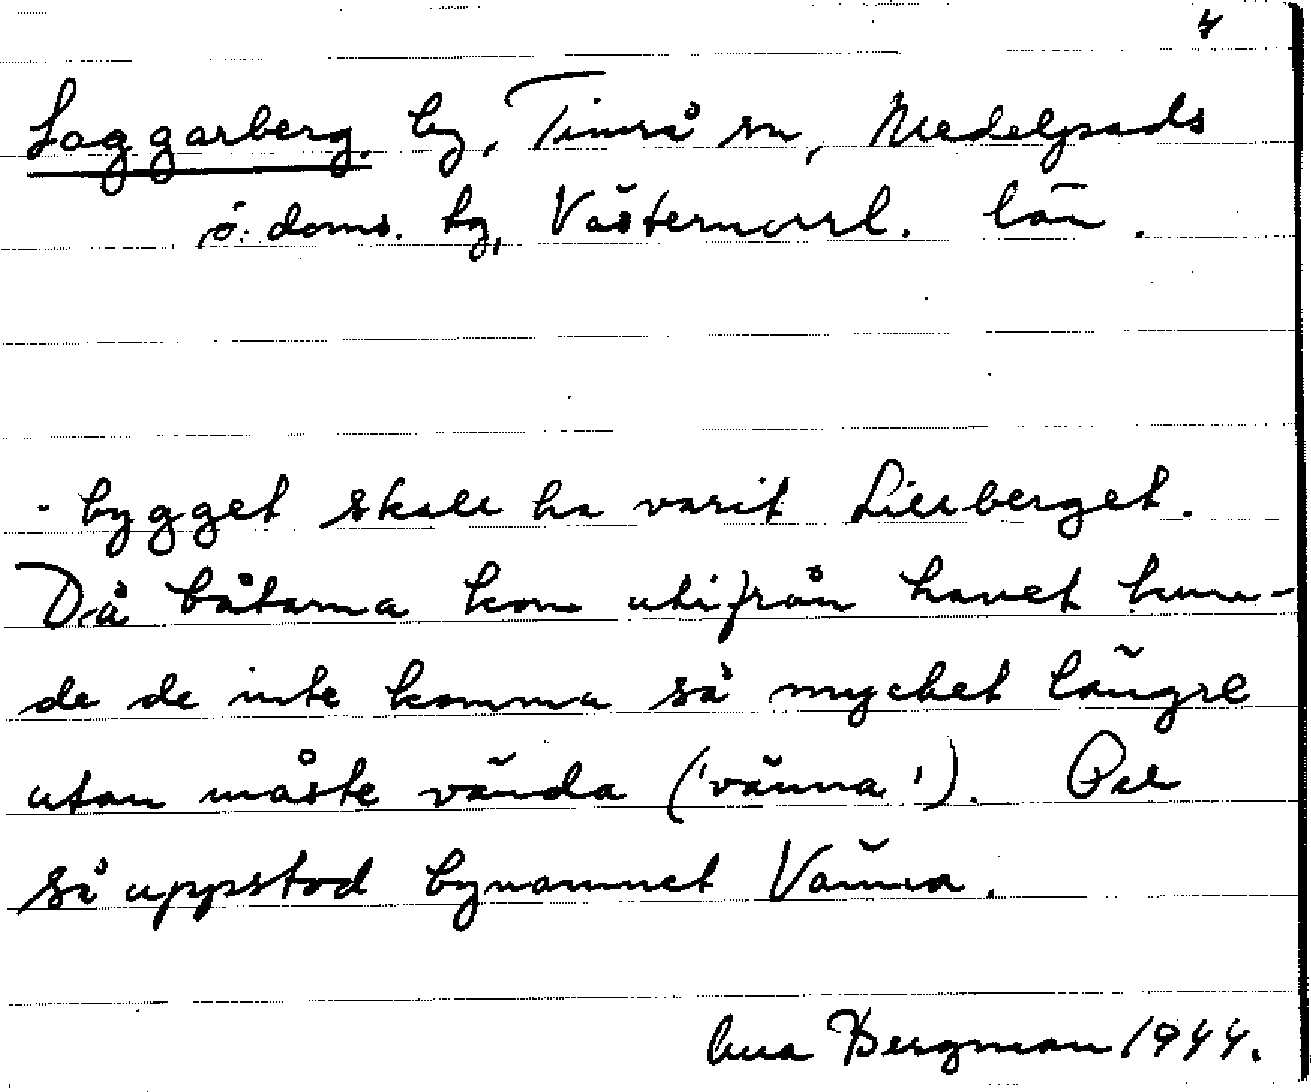 4
Laggarberg, by, Timrå sn, Medelpads
ö. doms. hg, Västernorrl. län.
- bygget skall ha varit Lillberget.
Då båtarna kom utifrån havet kun-
de de inte komma så mycket längre
utan måste vända ('vänna'). På
så uppstod bynamnet Vänna.
Bergman 1944.